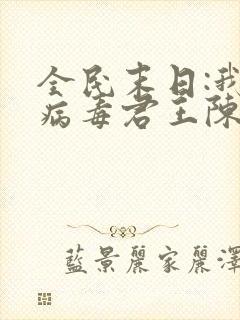 全民末日:我
病毒君王陈
藍景麗家麗澤